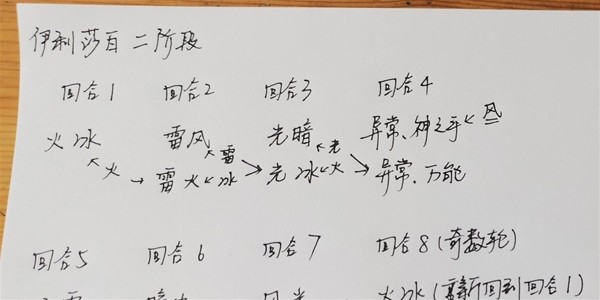 伊利莎白 二阶段
回合1 回合2 回合3 回合4
火冰 雷风 光暗 异常、神之手 风
火 雷 光
雷 火 冰 光 冰 火 异常、万能
回合5 回合6 回合7 回合8(奇数轮)
火冰(重新回到回合1)